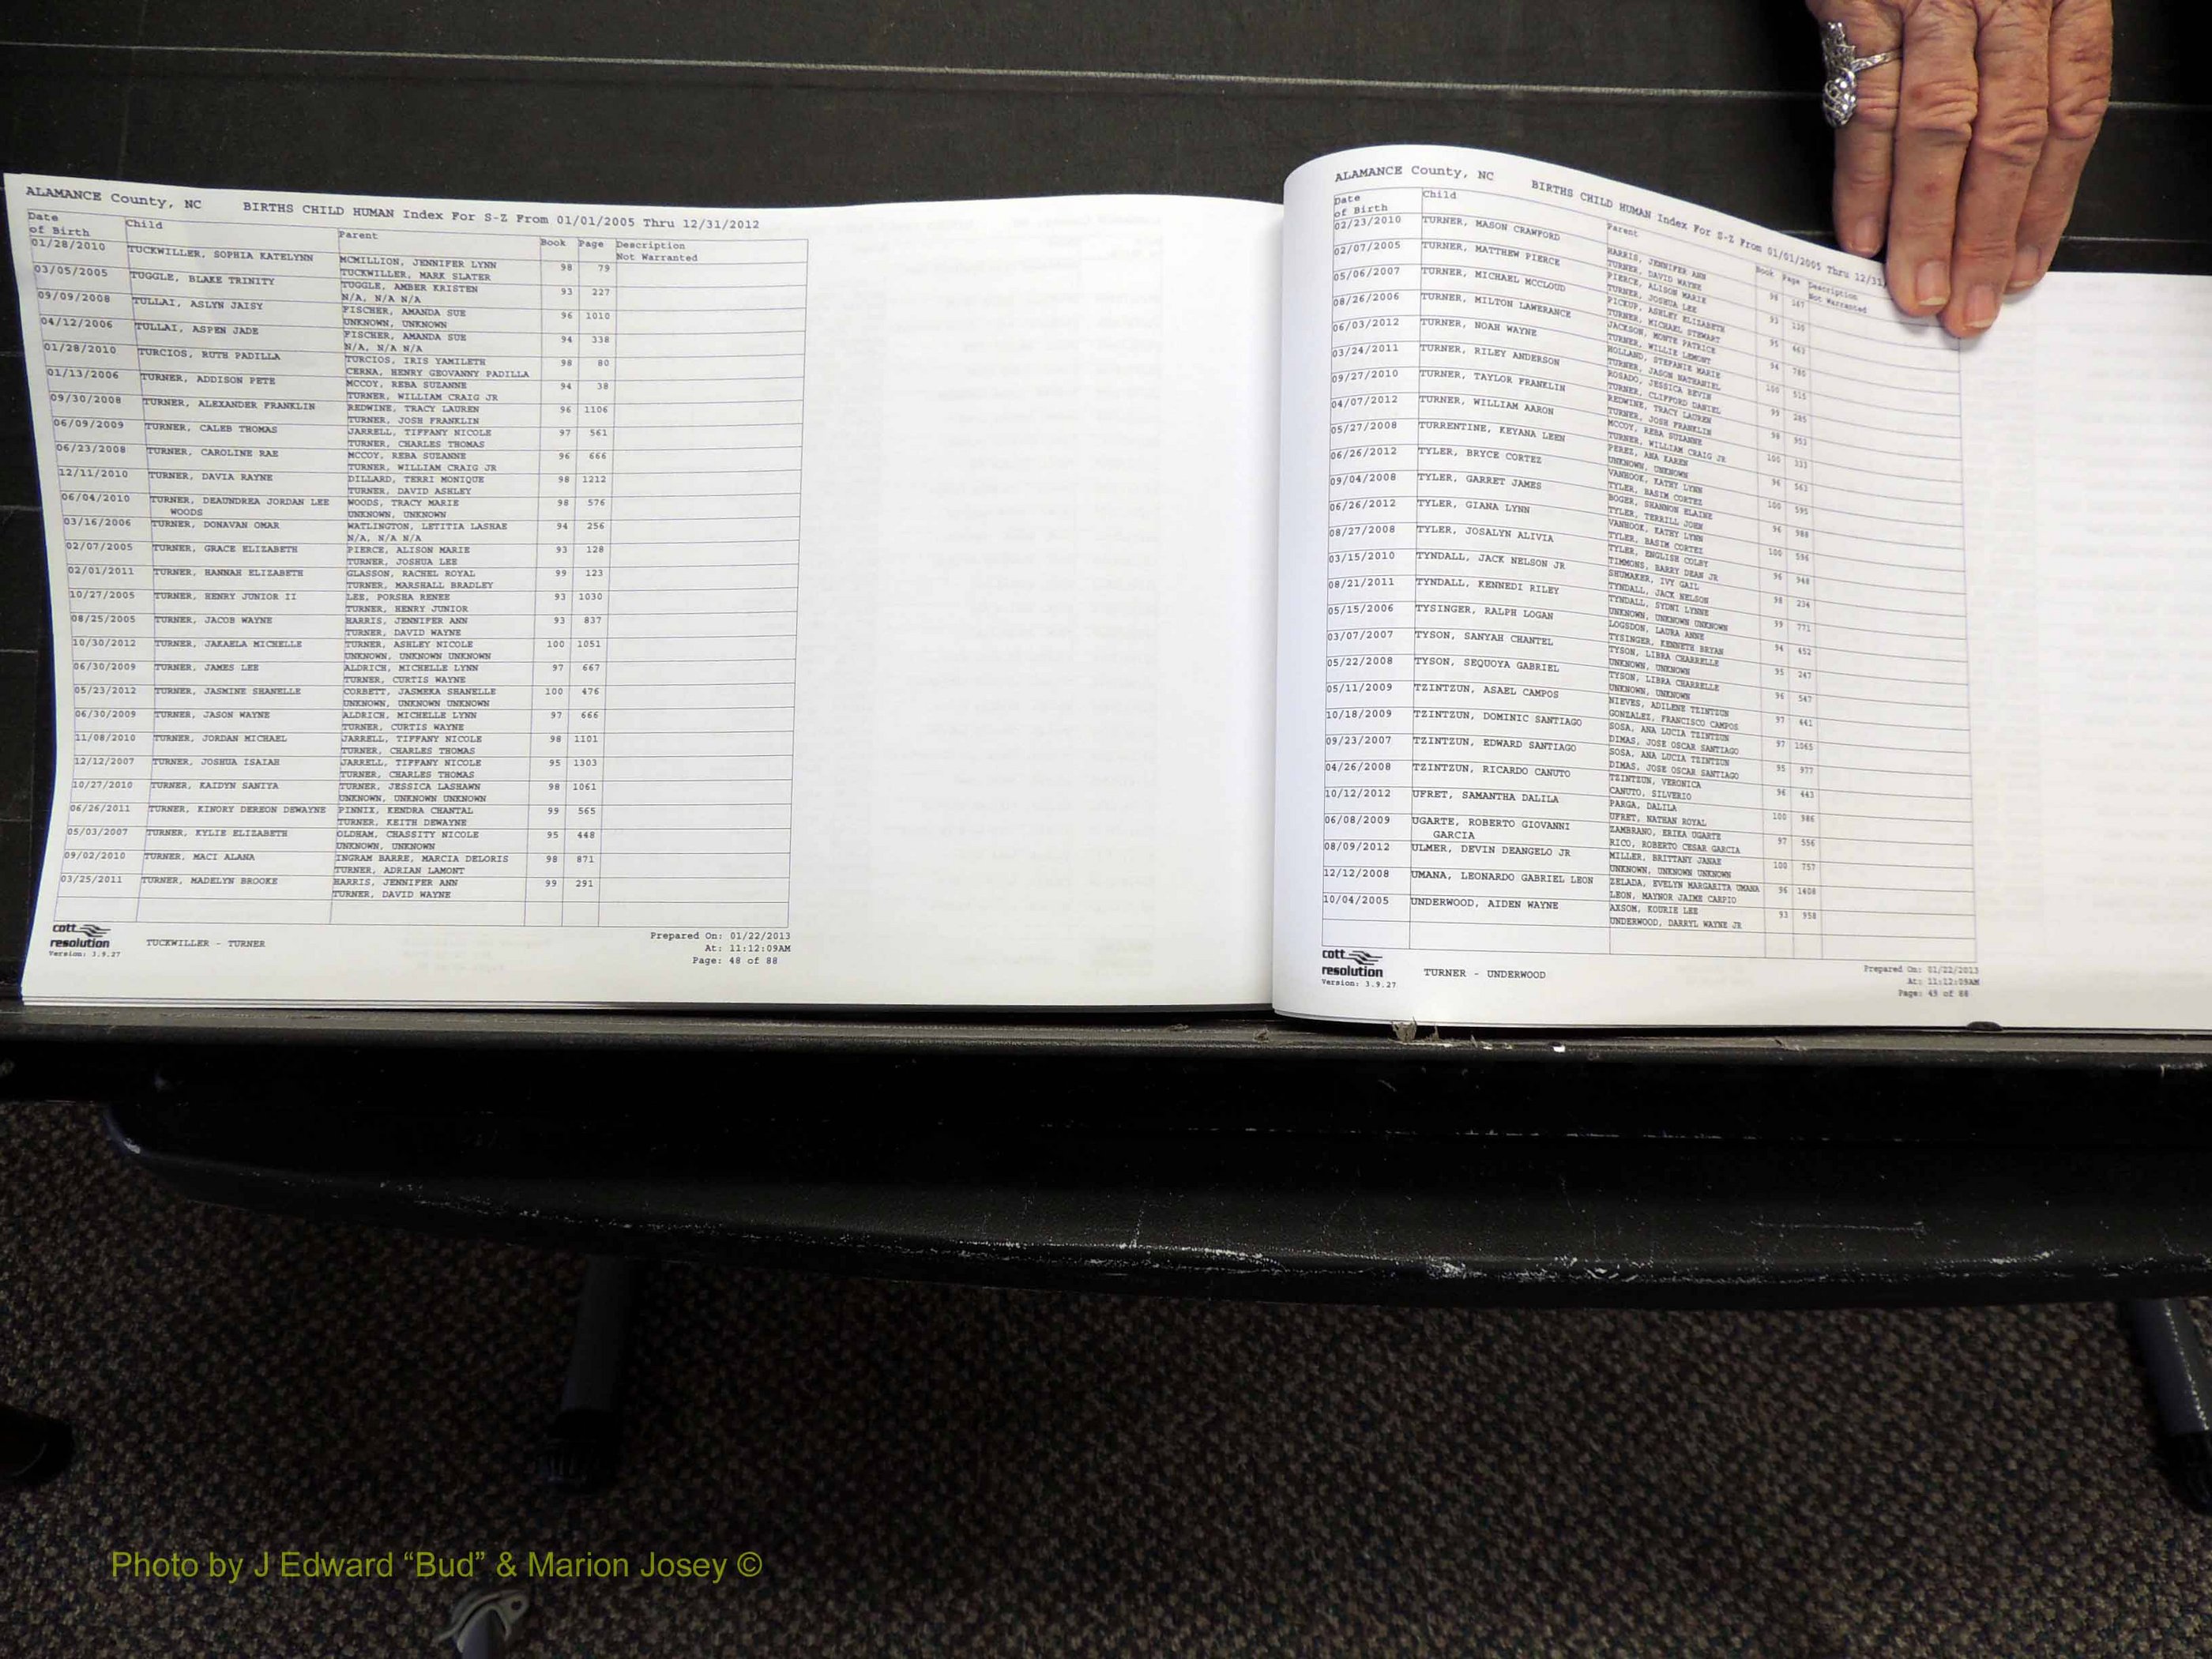 ALAMANCE County, NC BIRTHS CHILD HUMAN Index For S-Z From 01/01/2005 Thru 12/31/2012
Date of Birth Child Parent Book Page Description Not Warranted
01/28/2010 TUCKWILLER, SOPHIA KATELYNN MCMILLION, JENNIFER LYNN 98 79
TUCKWILLER, MARK SLATER
03/05/2005 TUGGLE, BLAKE TRINITY TUGGLE, AMBER KRISTEN 93 227
N/A, N/A N/A
09/09/2008 TULLAI, ASLYN JAISY FISCHER, AMANDA SUE 96 1010
UNKNOWN, UNKNOWN
04/12/2006 TULLAI, ASPEN JADE FISCHER, AMANDA SUE 94 338
N/A, N/A N/A
01/28/2010 TURCIOS, RUTH PADILLA TURCIOS, IRIS YAMILETH 98 80
CERNA, HENRY GEOVANNY PADILLA
01/13/2006 TURNER, ADDISON PETE MCCOY, REBA SUZANNE 94 38
TURNER, WILLIAM CRAIG JR
09/30/2008 TURNER, ALEXANDER FRANKLIN REDWINE, TRACY LAUREN 96 1106
TURNER, JOSH FRANKLIN
06/09/2009 TURNER, CALEB THOMAS JARRELL, TIFFANY NICOLE 97 561
TURNER, CHARLES THOMAS
06/23/2008 TURNER, CAROLINE RAE MCCOY, REBA SUZANNE 96 666
TURNER, WILLIAM CRAIG JR
12/11/2010 TURNER, DAVIA RAYNE DILLARD, TERRI MONIQUE 98 1212
TURNER, DAVID ASHLEY
06/04/2010 TURNER, DEAUNDREA JORDAN LEE WOODS, TRACY MARIE 98 576
WOODS UNKNOWN, UNKNOWN
03/16/2006 TURNER, DONAVAN OMAR WATLINGTON, LETITIA LASHAE 94 256
N/A, N/A N/A
02/07/2005 TURNER, GRACE ELIZABETH PIERCE, ALISON MARIE 93 128
TURNER, JOSHUA LEE
02/01/2011 TURNER, HANNAH ELIZABETH GLASSON, RACHEL ROYAL 99 123
TURNER, MARSHALL BRADLEY
10/27/2005 TURNER, HENRY JUNIOR II LEE, PORSHA RENEE 93 1030
TURNER, HENRY JUNIOR
08/25/2005 TURNER, JACOB WAYNE HARRIS, JENNIFER ANN 93 837
TURNER, DAVID WAYNE
10/30/2012 TURNER, JAKAELA MICHELLE TURNER, ASHLEY NICOLE 100 1051
UNKNOWN, UNKNOWN UNKNOWN
06/30/2009 TURNER, JAMES LEE ALDRICH, MICHELLE LYNN 97 667
TURNER, CURTIS WAYNE
05/23/2012 TURNER, JASMINE SHANELLE CORBETT, JASMEKA SHANELLE 100 476
UNKNOWN, UNKNOWN UNKNOWN
06/30/2009 TURNER, JASON WAYNE ALDRICH, MICHELLE LYNN 97 666
TURNER, CURTIS WAYNE
11/08/2010 TURNER, JORDAN MICHAEL JARRELL, TIFFANY NICOLE 98 1101
TURNER, CHARLES THOMAS
12/12/2007 TURNER, JOSHUA ISAIAH JARRELL, TIFFANY NICOLE 95 1303
TURNER, CHARLES THOMAS
10/27/2010 TURNER, KAIDYN SANIYA TURNER, JESSICA LASHAWN 98 1061
UNKNOWN, UNKNOWN UNKNOWN
06/26/2011 TURNER, KINORY DEREON DEWAYNE PINNIX, KENDRA CHANTAL 99 565
TURNER, KEITH DEWAYNE
05/03/2007 TURNER, KYLIE ELIZABETH OLDHAM, CHASSITY NICOLE 95 448
UNKNOWN, UNKNOWN
09/02/2010 TURNER, MACI ALANA INGRAM BARRE, MARCIA DELORIS 98 871
TURNER, ADRIAN LAMONT
03/25/2011 TURNER, MADELYN BROOKE HARRIS, JENNIFER ANN 99 291
TURNER, DAVID WAYNE
cott resolution Version: 3.9.27
TUCKWILLER - TURNER
Prepared On: 01/22/2013
At: 11:12:09AM
Page: 48 of 88
ALAMANCE County, NC BIRTHS CHILD HUMAN Index For S-Z From 01/01/2005 Thru 12/31
Date of Birth Child Parent Book Page Description Not Warranted
02/23/2010 TURNER, MASON CRAWFORD HARRIS, JENNIFER ANN 98 167
TURNER, DAVID WAYNE
02/07/2005 TURNER, MATTHEW PIERCE PIERCE, ALISON MARIE 93
TURNER, JOSHUA LEE
05/06/2007 TURNER, MICHAEL MCCLOUD PICKUP, ASHLEY ELIZABETH 95 463
TURNER, MICHAEL STEWART
08/26/2006 TURNER, MILTON LAWERANCE JACKSON, MONTE PATRICE 94 780
TURNER, WILLIE LEMONT
06/03/2012 TURNER, NOAH WAYNE HOLLAND, STEFANIE MARIE 100 515
TURNER, JASON NATHANIEL
03/24/2011 TURNER, RILEY ANDERSON ROSADO, JESSICA BEVIN 99 285
TURNER, CLIFFORD DANIEL
09/27/2010 TURNER, TAYLOR FRANKLIN REDWINE, TRACY LAUREN 98 953
TURNER, JOSH FRANKLIN
04/07/2012 TURNER, WILLIAM AARON MCCOY, REBA SUZANNE 100 333
TURNER, WILLIAM CRAIG JR
05/27/2008 TURRENTINE, KEYANA LEEN PEREZ, ANA KAREN 96 563
UNKNOWN, UNKNOWN
06/26/2012 TYLER, BRYCE CORTEZ VANHOOK, KATHY LYNN 100 595
TYLER, BASIM CORTEZ
09/04/2008 TYLER, GARRET JAMES BOGER, SHANNON ELAINE 96 988
TYLER, TERRILL JOHN
06/26/2012 TYLER, GIANA LYNN VANHOOK, KATHY LYNN 100 594
TYLER, BASIM CORTEZ
08/27/2008 TYLER, JOSALYN ALIVIA TYLER, ENGLISH COLBY 96 948
TIMMONS, BARRY DEAN JR
03/15/2010 TYNDALL, JACK NELSON JR SHUMAKER, IVY GAIL 98 234
TYNDALL, JACK NELSON
08/21/2011 TYNDALL, KENNEDI RILEY TYNDALL, SYDNI LYNNE 99 771
UNKNOWN, UNKNOWN UNKNOWN
05/15/2006 TYSINGER, RALPH LOGAN LOGSDON, LAURA ANNE 94 452
TYSINGER, KENNETH BRYAN
03/07/2007 TYSON, SANYAH CHANTEL TYSON, LIBRA CHARRELLE 95 247
UNKNOWN, UNKNOWN
05/22/2008 TYSON, SEQUOYA GABRIEL TYSON, LIBRA CHARRELLE 96 547
UNKNOWN, UNKNOWN
05/11/2009 TZINTZUN, ASAEL CAMPOS NIEVES, ADILENE TZINTZUN 97 441
GONZALEZ, FRANCISCO CAMPOS
10/18/2009 TZINTZUN, DOMINIC SANTIAGO SOSA, ANA LUCIA TZINTZUN 97 1065
DIMAS, JOSE OSCAR SANTIAGO
09/23/2007 TZINTZUN, EDWARD SANTIAGO SOSA, ANA LUCIA TZINTZUN 95 977
DIMAS, JOSE OSCAR SANTIAGO
04/26/2008 TZINTZUN, RICARDO CANUTO TZINTZUN, VERONICA 96 443
CANUTO, SILVERIO
10/12/2012 UFRET, SAMANTHA DALILA PARGA, DALILA 100 986
UFRET, NATHAN ROYAL
06/08/2009 UGARTE, ROBERTO GIOVANNI ZAMBRANO, ERIKA UGARTE 97 556
GARCIA RICO, ROBERTO CESAR GARCIA
08/09/2012 ULMER, DEVIN DEANGELO JR MILLER, BRITTANY JANAE 100 757
UNKNOWN, UNKNOWN UNKNOWN
12/12/2008 UMANA, LEONARDO GABRIEL LEON ZELADA, EVELYN MARGARITA UMANA 96 1408
LEON, MAYNOR JAIME CARPIO
10/04/2005 UNDERWOOD, AIDEN WAYNE AXSOM, KOURIE LEE 93 958
UNDERWOOD, DARRYL WAYNE JR
cott resolution Version: 3.9.27
TURNER - UNDERWOOD
Prepared On: 01/22/2013
At: 11:12:09AM
Page: 49 of 88
Photo by J Edward “Bud” & Marion Josey ©